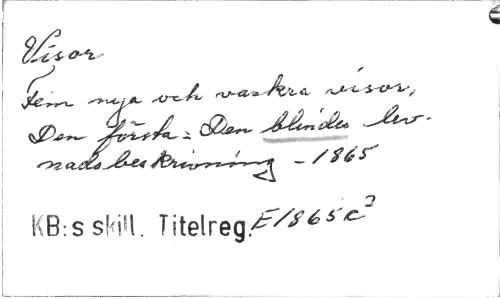 Visor
Fem nya och vackra visor,
Den första: Den blindes lev-
nadsbeskrivning - 1865
KB:s skill. Titelreg. E1865c²